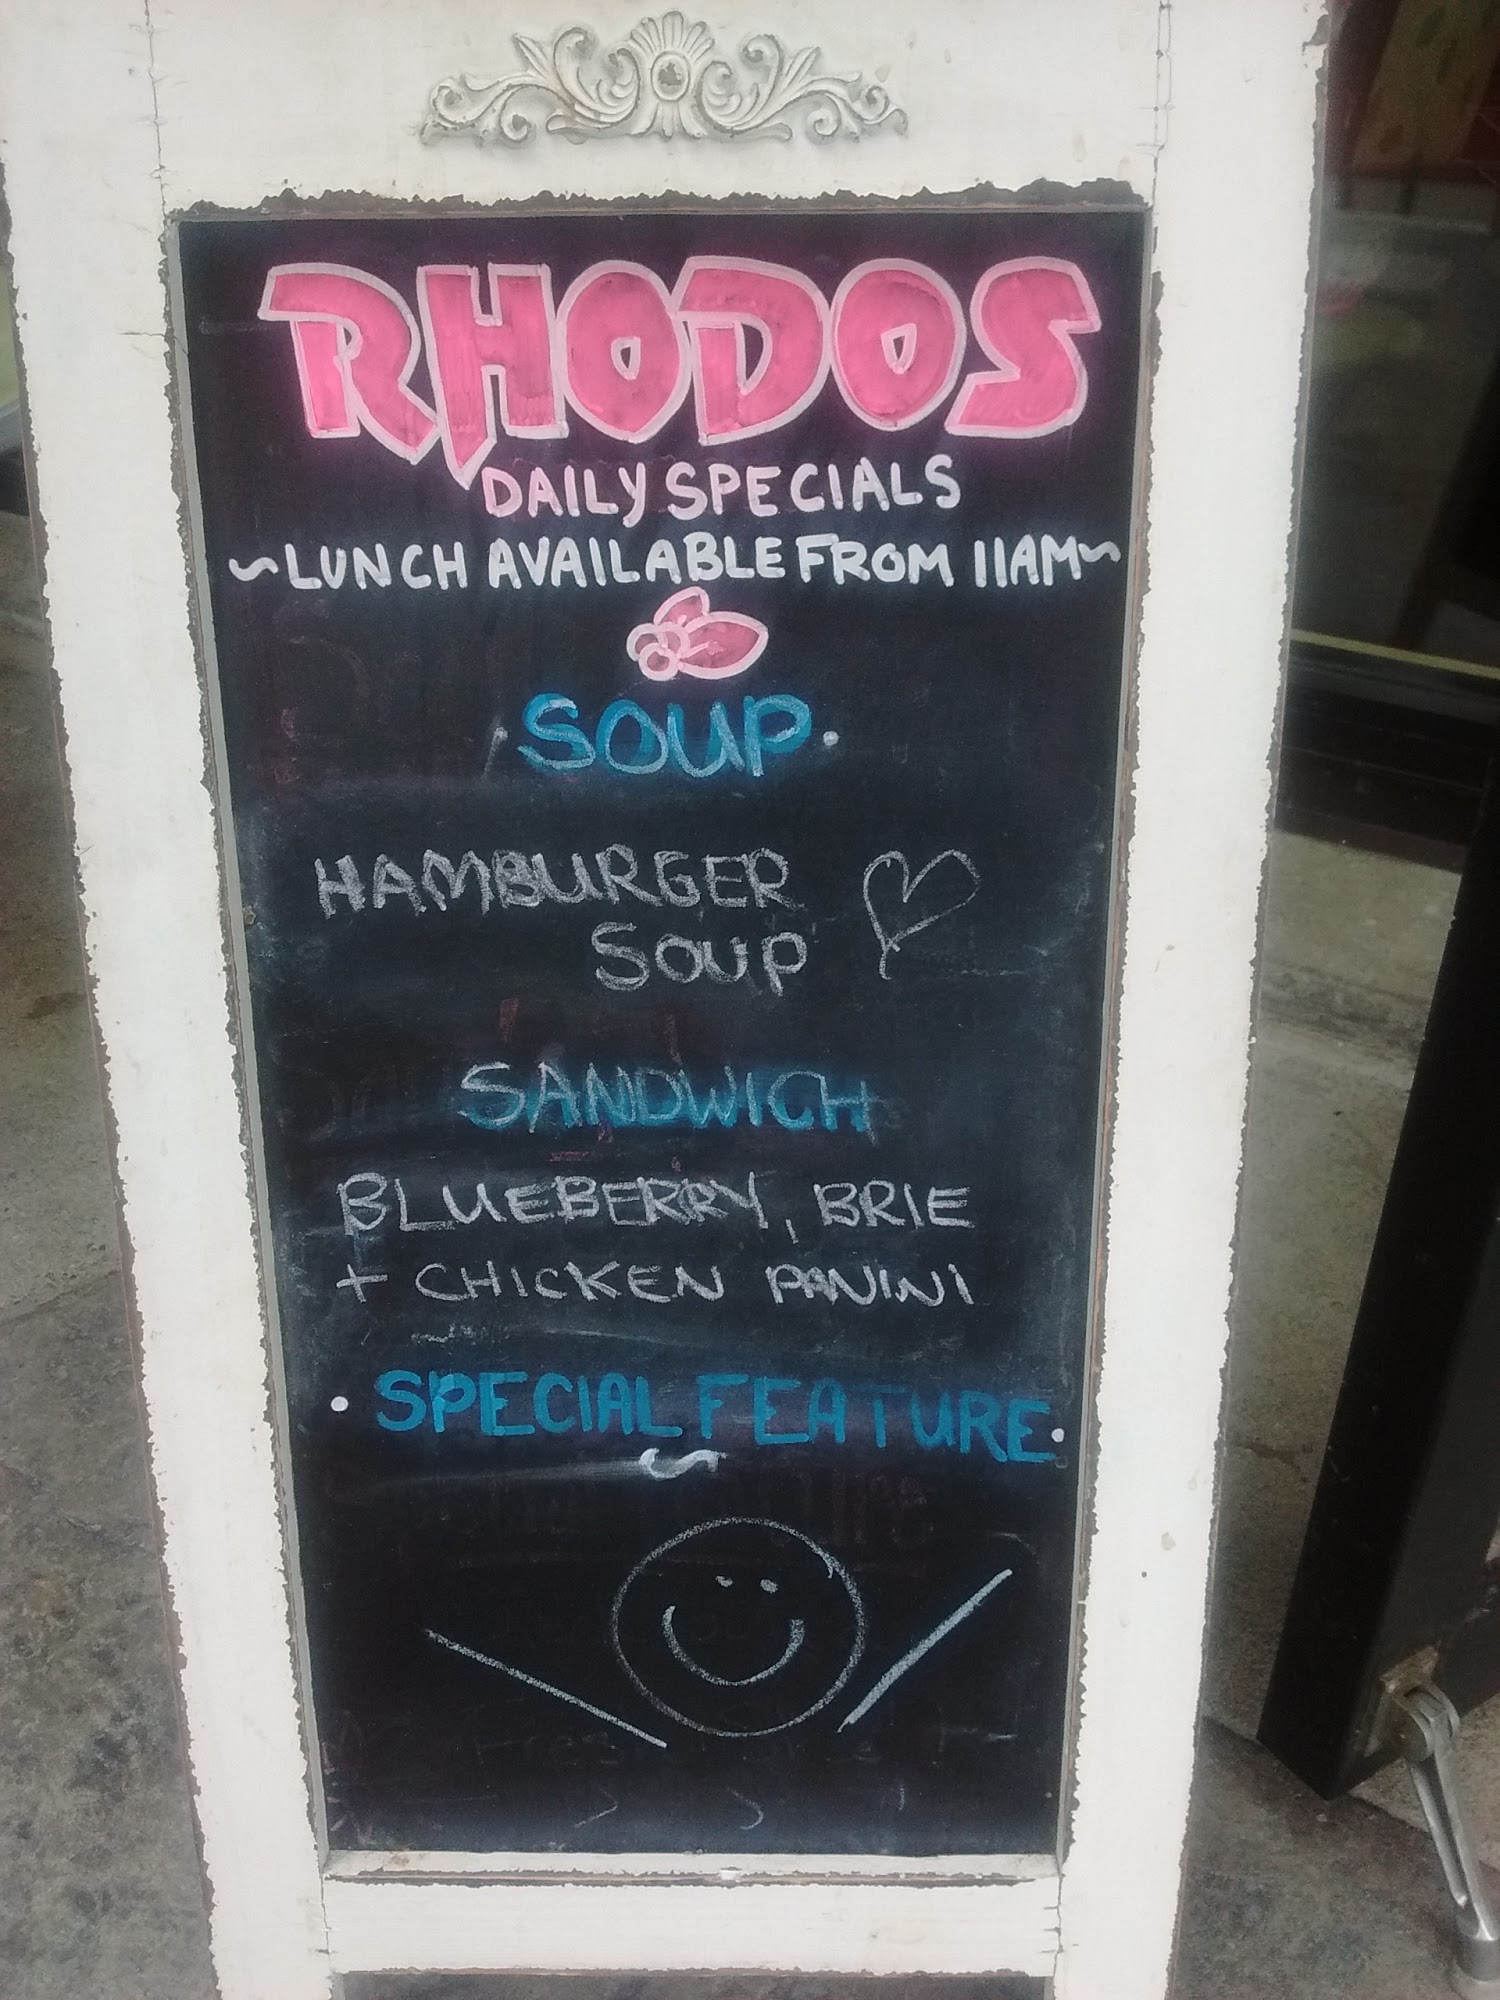 RHODOS
DAILY SPECIALS
~LUNCH AVAILABLE FROM 11AM~
·SOUP·
HAMBURGER
SOUP
SANDWICH
BLUEBERRY, BRIE
+ CHICKEN PANINI
·SPECIAL FEATURE·